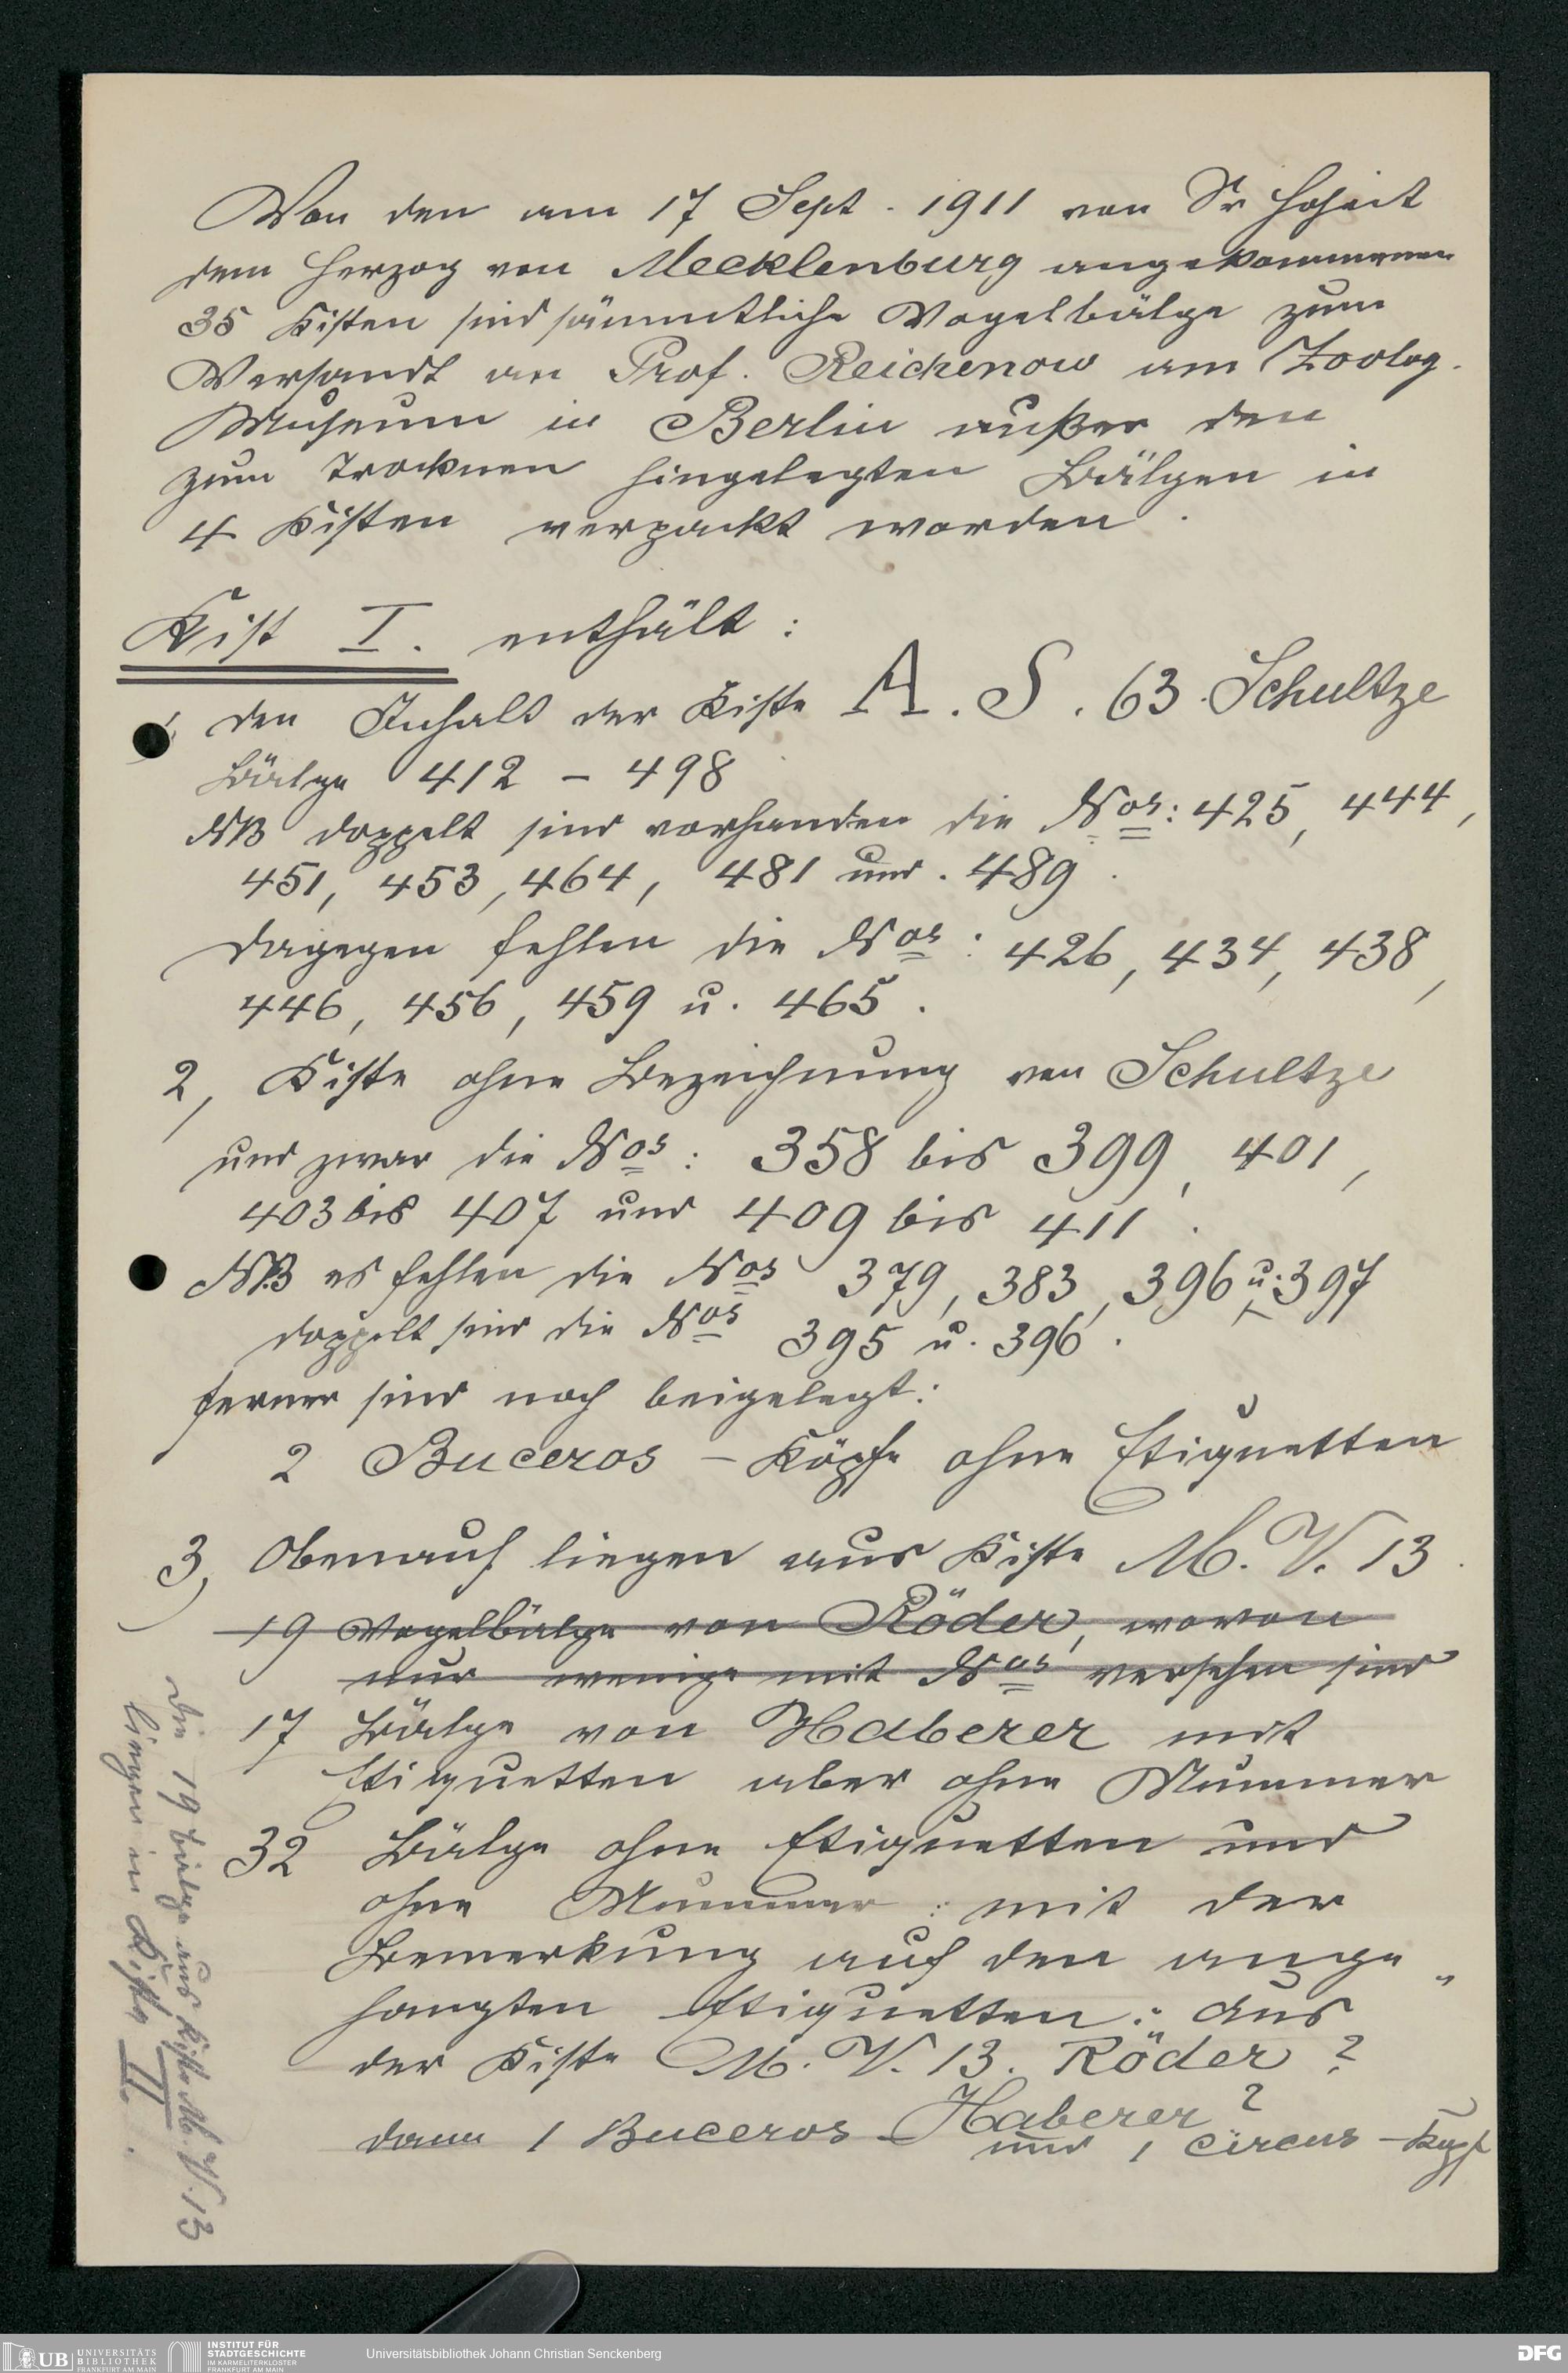 Von den am 17 Sept. 1911 von Sr Hoheit
dem Herzog von Mecklenburg angekommenen
35 Kisten sind sämmtliche Vogelbälge zum
Versandt an Prof. Reichenow am Zoolog.
Museum in Berlin außer den
zum Trocknen hingelegten Bälgen in
4 Kisten verpackt worden.
Kist I. enthält:
1, den Inhalt der Kiste A. S. 63. Schultze
Bälge 412 – 498
NB doppelt sind vorhanden die Nos: 425, 444,
451, 453, 464, 481 und. 489.
dagegen fehlen die Nos: 426, 434, 438,
446, 456, 459 u. 465.
2, Kiste ohne Bezeichnung von Schultze
und zwar die Nos: 358 bis 399, 401,
403 bis 407 und 409 bis 411.
NB es fehlen die Nos 379, 383, 396 u. 397
doppelt sind die Nos 395 u. 396.
ferner sind noch beigelegt:
2 Buceros – Köpfe ohne Etiquetten
3, Obenauf liegen aus Kiste M. V. 13.
19 Vogelbälge von Röder, wovon
nur wenige mit Nos versehen sind
17 Bälge von Haberer mit
Etiquetten aber ohne Nummer
32 Bälge ohne Etiquetten und
ohne Nummer: mit der
Bemerkung auf den ange„
hangten Etiquetten: Aus
der Kiste M. V. 13. Röder?
Haberer?
dann 1 Buceros und 1 Circus – Kopf
die 19 Bälge aus Kiste M. V. 13
liegen in Kiste II.
UB UNIVERSITÄTS
BIBLIOTHEK
FRANKFURT AM MAIN
INSTITUT FÜR
STADTGESCHICHTE
IM KARMELITERKLOSTER
FRANKFURT AM MAIN
Universitätsbibliothek Johann Christian Senckenberg
DFG